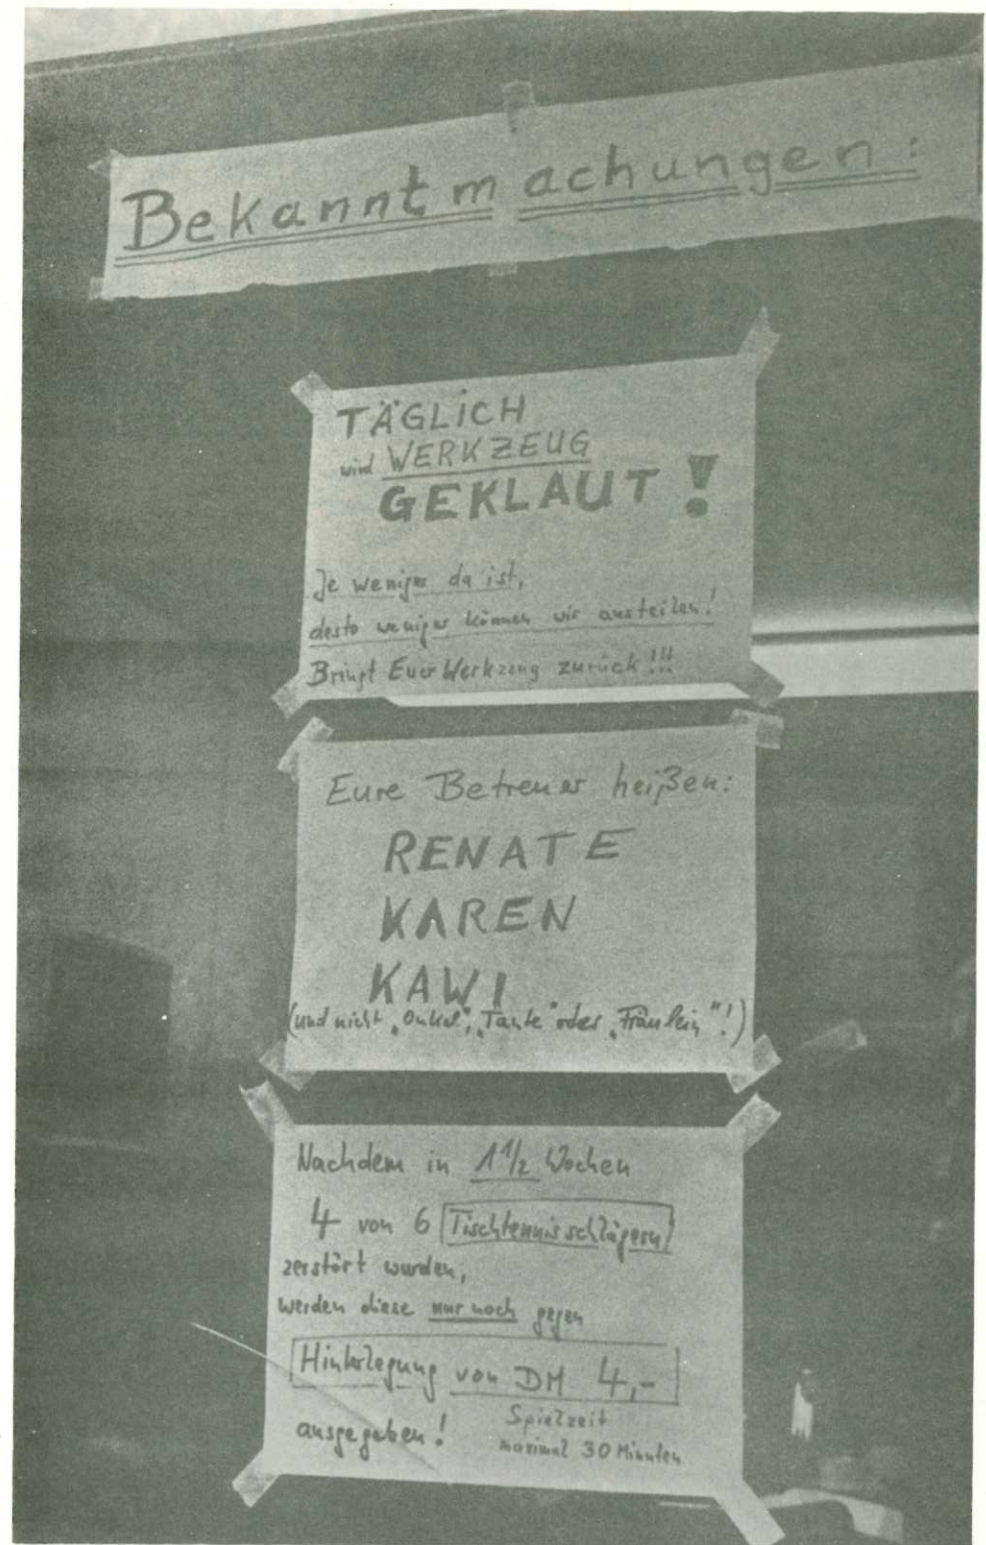 Bekanntmachungen:
TÄGLICH
wird WERKZEUG
GEKLAUT!
Je weniger da ist,
desto weniger können wir austeilen!
Bringt Euer Werkzeug zurück!!!
Eure Betreuer heißen:
RENATE
KAREN
KAWI
(und nicht „Onkel“, „Tante“ oder „Fräulein“!)
Nachdem in 1 1/2 Wochen
4 von 6 Tischtennisschlägern
zerstört wurden,
werden diese nur noch gegen
Hinterlegung von DM 4,-
ausgegeben! Spielzeit
maximal 30 Minuten